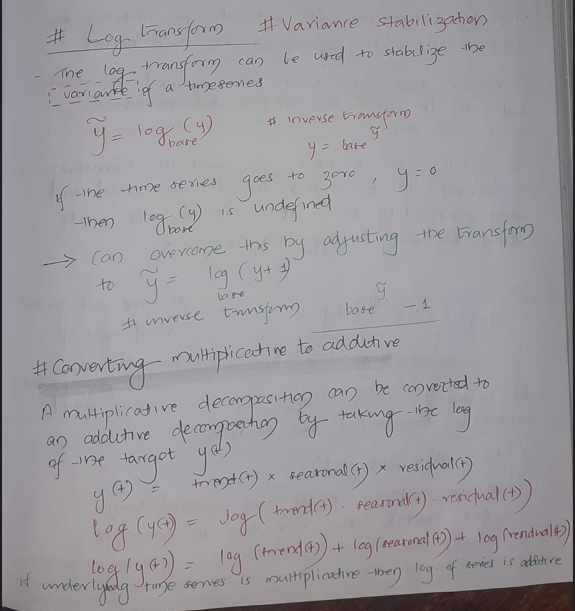 # Log transform # Variance stabilization
- The log transform can be used to stabilize the
variance of a timeseries
ỹ = log_base (y) # inverse transform
y = base^ỹ
if the time series goes to zero, y = 0
then log_base (y) is undefined
→ Can overcome this by adjusting the transform
to ỹ = log_base (y+1)
# inverse transform base^ỹ - 1
# Converting multiplicative to additive
A multiplicative decomposition can be converted to
an additive decomposition by taking the log
of the target y(t)
y(t) = trend(t) × seasonal(t) × residual(t)
log(y(t)) = log(trend(t) . seasonal(t) . residual(t))
log(y(t)) = log(trend(t)) + log(seasonal(t)) + log(residual(t))
if underlying time series is multiplicative then log of series is additive